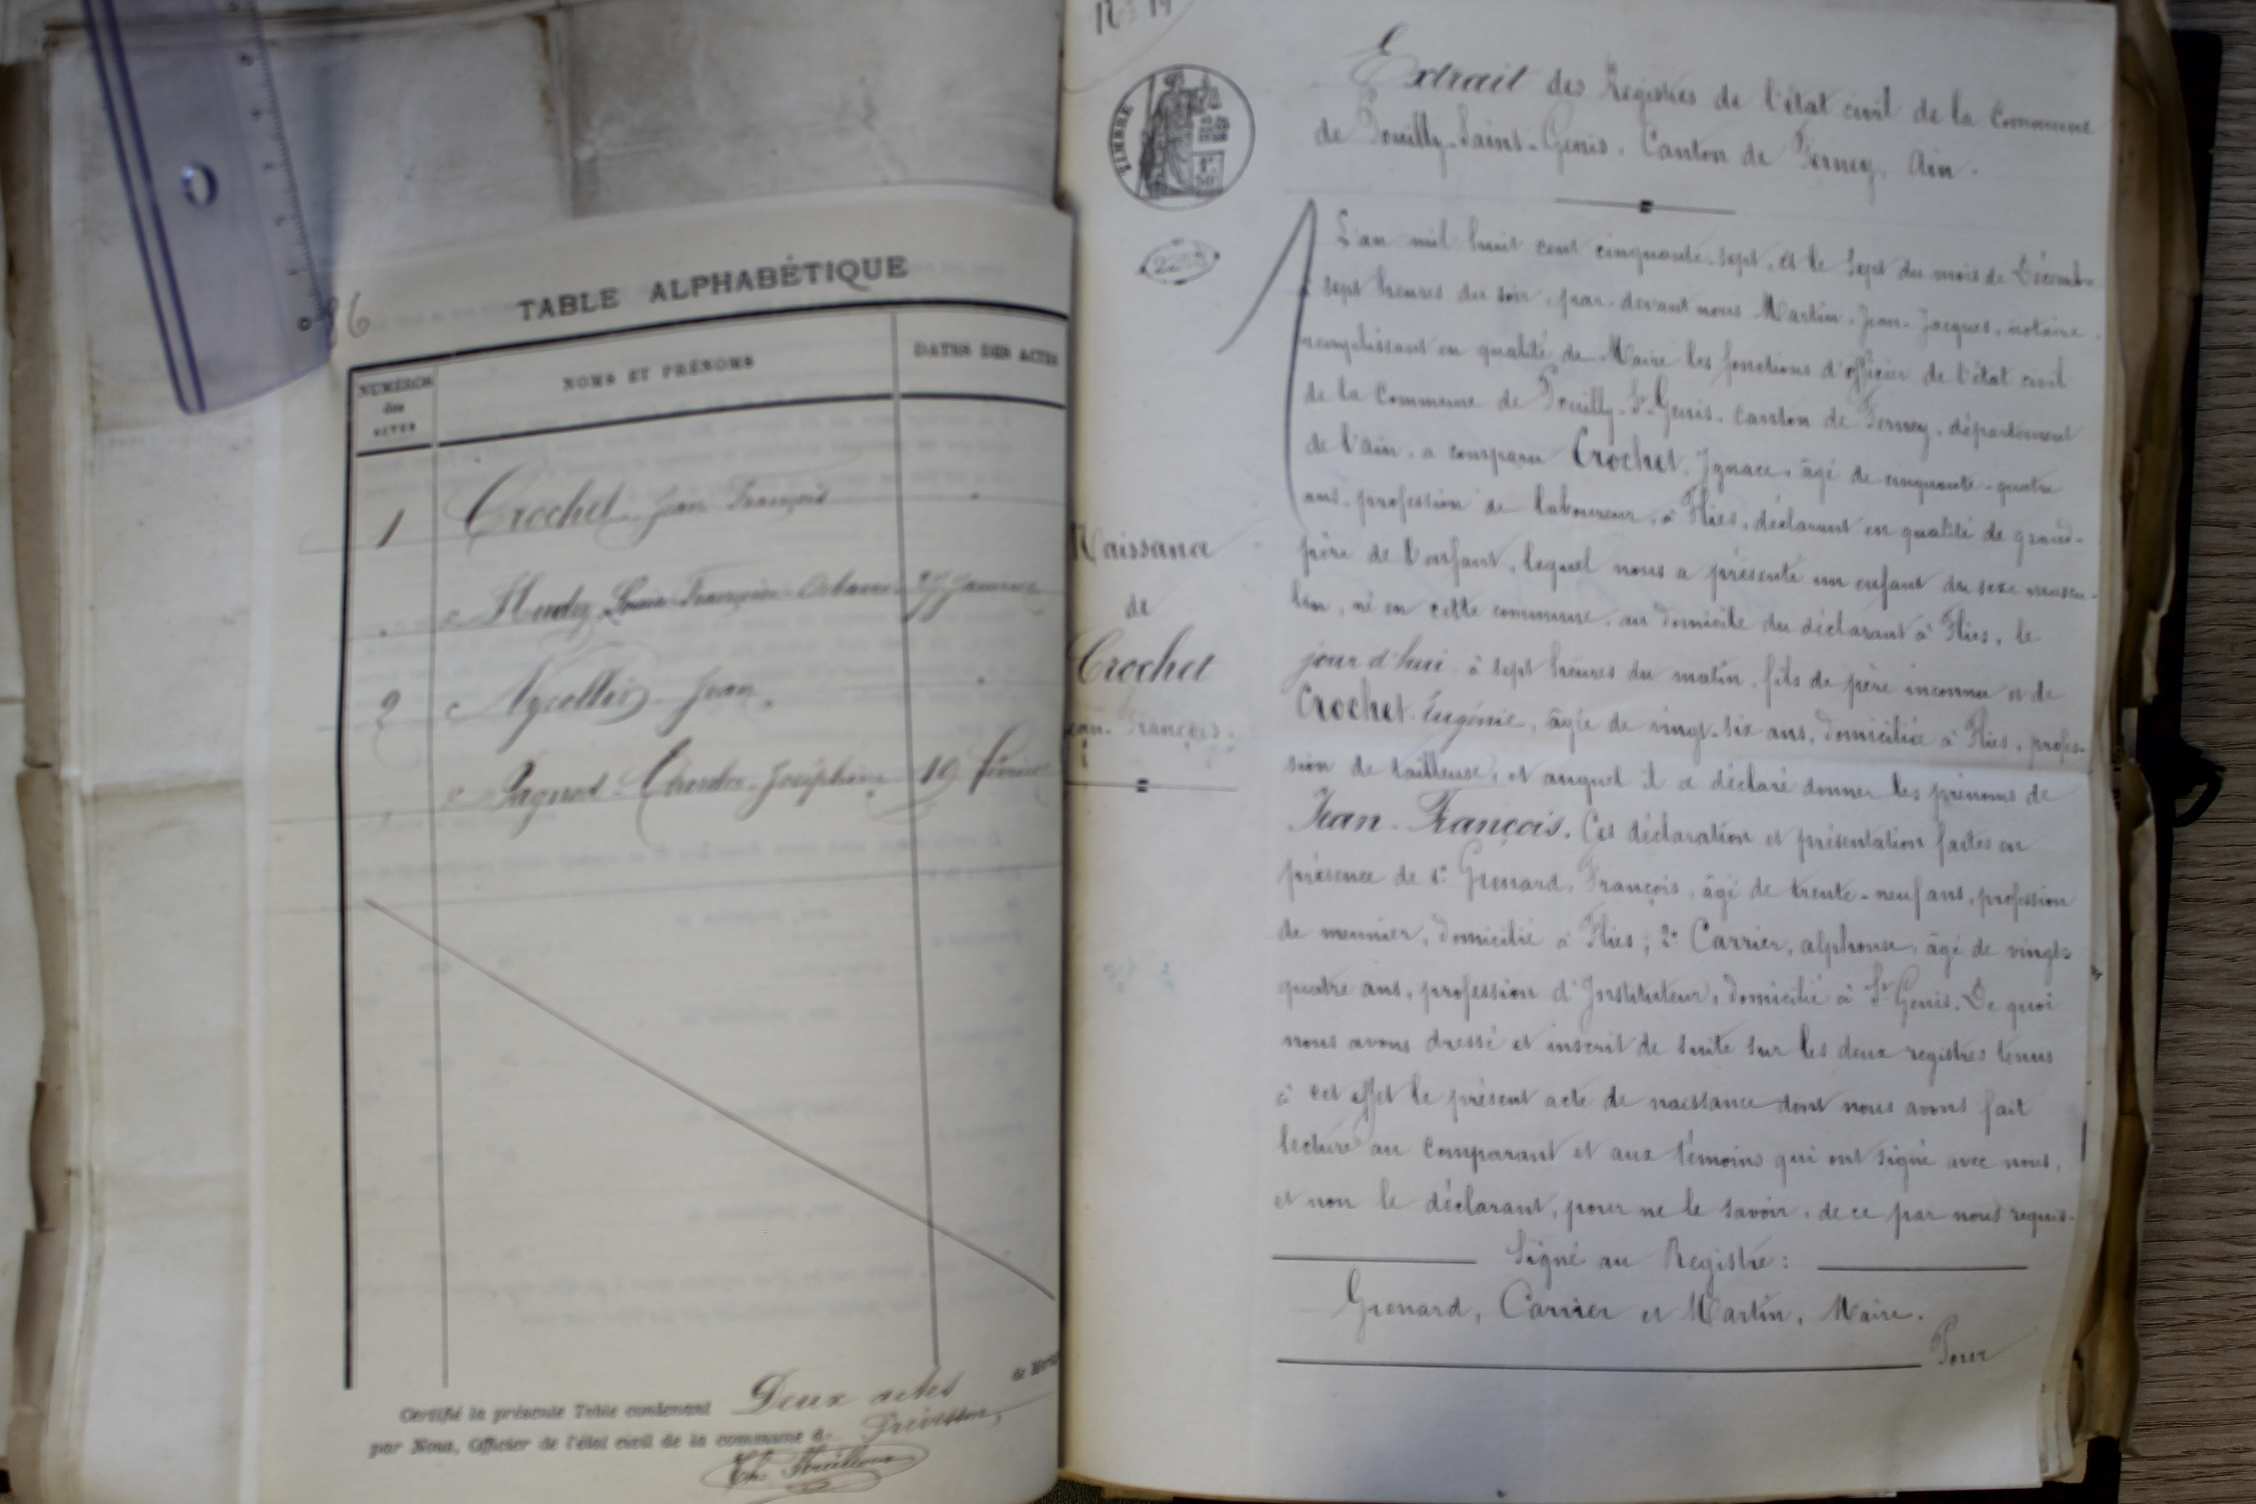 86
TABLE ALPHABÉTIQUE
NUMÉROS
des
ACTES
NOMS ET PRÉNOMS
DATES DES ACTES
1 Crochet Jean François
et Louise Françoise 27 Janvier
2 Jean
et Josephine 19 Février
Certifié la présente Table contenant Deux actes de
par Nous, Officier de l'état civil de la commune de
TIMBRE
Extrait des Registres de l'état civil de la Commune
de Pouilly-Saint-Genis. Canton de Ferney, Ain.
Naissance
de
Crochet
Jean-François.
L'an mil huit cent cinquante-sept, et le sept du mois de Décembre
sept heures du soir, par-devant nous Martin, Jean-Jacques, notaire,
remplissant en qualité de Maire les fonctions d'officier de l'état civil
de la Commune de Pouilly-St-Genis. Canton de Ferney, département
de l'ain, a comparu Crochet, Ignace, âgé de cinquante-quatre
ans, profession de laboureur, à Flies, déclarant en qualité de grand-
père de l'enfant, lequel nous a présenté un enfant du sexe mascu-
lin, né en cette commune, au domicile du déclarant à Flies, le
jour d'hui à sept heures du matin, fils de père inconnu et de
Crochet Eugénie, âgée de vingt-six ans, domiciliée à Flies, profes-
sion de tailleuse, et auquel il a déclaré donner les prénoms de
Jean-François. Ces déclaration et présentation faites en
présence de 1° Grenard, François, âgé de trente-neuf ans, profession
de meunier, domicilié à Flies; 2° Carrier, alphonse, âgé de vingt-
quatre ans, profession d'Instituteur, domicilié à St Genis. De quoi
nous avons dressé et inscrit de suite sur les deux registres tenus
à cet effet le présent acte de naissance dont nous avons fait
lecture au comparant et aux témoins qui ont signé avec nous,
et non le déclarant, pour ne le savoir, de ce par nous requis.
Signé au Registre:
Grenard, Carrier et Martin, Maire.
Pour